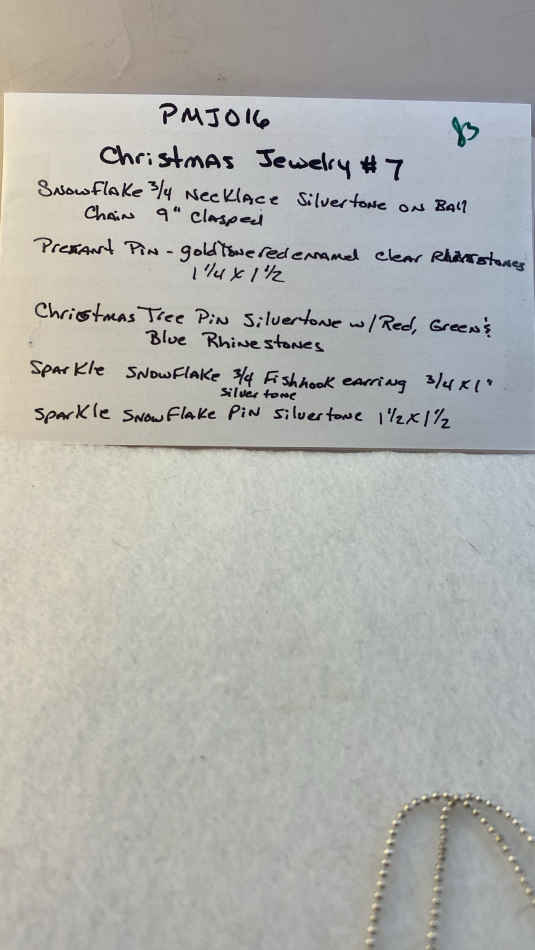 PMJ016
Christmas Jewelry #7
Snowflake 3/4 Necklace Silvertone on Ball
Chain 9" Clasped
Present Pin - goldtone red enamel clear Rhinestones
1 1/4 x 1 1/2
Christmas Tree Pin Silvertone w/Red, Green &
Blue Rhinestones
Sparkle Snowflake 3/4 Fishhook earring 3/4 x 1"
Silvertone
Sparkle Snowflake Pin Silvertone 1 1/2 x 1 1/2